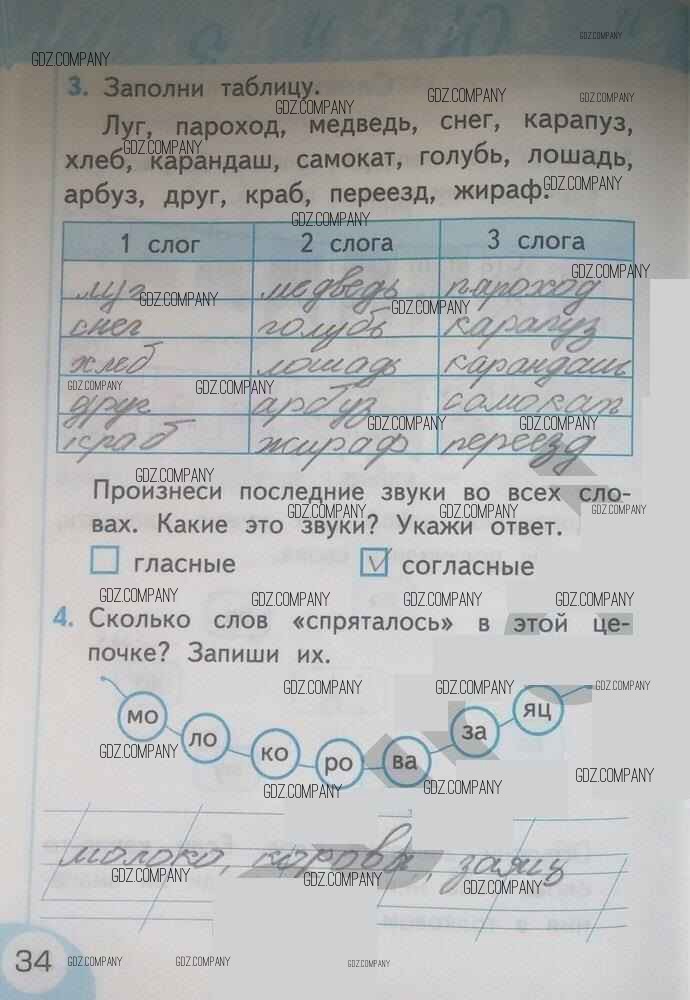 GDZ.COMPANY
GDZ.COMPANY
3. Заполни таблицу.
GDZ.COMPANY GDZ.COMPANY GDZ.COMPANY
Луг, пароход, медведь, снег, карапуз,
GDZ.COMPANY
хлеб, карандаш, самокат, голубь, лошадь,
GDZ.COMPANY
арбуз, друг, краб, переезд, жираф.
GDZ.COMPANY
1 слог 2 слога 3 слога
GDZ.COMPANY
луг медведь пароход
GDZ.COMPANY GDZ.COMPANY
снег голубь карапуз
хлеб лошадь карандаш
GDZ.COMPANY GDZ.COMPANY
друг арбуз самокат
GDZ.COMPANY GDZ.COMPANY
краб жираф переезд
GDZ.COMPANY
Произнеси последние звуки во всех сло-
GDZ.COMPANY GDZ.COMPANY GDZ.COMPANY
вах. Какие это звуки? Укажи ответ.
гласные согласные
GDZ.COMPANY GDZ.COMPANY GDZ.COMPANY GDZ.COMPANY
4. Сколько слов «спряталось» в этой це-
почке? Запиши их.
GDZ.COMPANY GDZ.COMPANY GDZ.COMPANY
мо ло ко ро ва за яц
GDZ.COMPANY GDZ.COMPANY
GDZ.COMPANY GDZ.COMPANY
молоко, корова, заяц
GDZ.COMPANY GDZ.COMPANY GDZ.COMPANY
34 GDZ.COMPANY GDZ.COMPANY GDZ.COMPANY